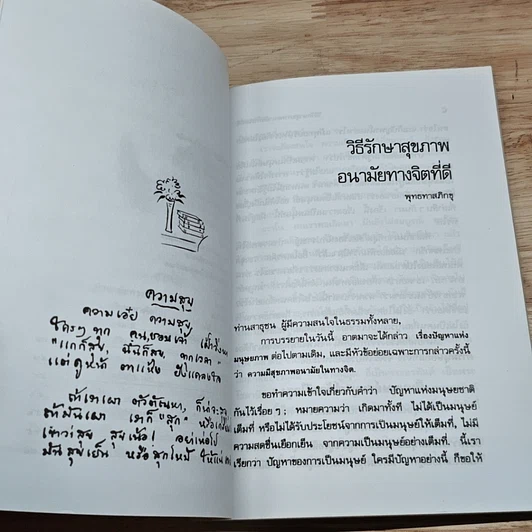 ความสุข
ความเอ๋ย ความสุข
ใครๆ ทุก คนชอบเจ้า เฝ้าวิ่ง
"แกก็สุข ฉันก็สุข ทุกเวลา"
แต่ดูหน้า ตาแห้ง ยังแคลงใจ
ถ้าเราเผา ตัวตัณหา ก็น่าจะ
ถ้ามันเผา เราก็ "สุก" หรือ
เขาว่าสุข สุขเน้อ! อย่าเห่อไป
มันสุขเย็น หรือสุกไหม้ ให้แน่
วิธีรักษาสุขภาพ
อนามัยทางจิตที่ดี
พุทธทาสภิกขุ
ท่านสาธุชน ผู้มีความสนใจในธรรมทั้งหลาย,
การบรรยายในวันนี้ อาตมาจะได้กล่าว เรื่องปัญหาแห่ง
มนุษยภาพ ต่อไปตามเดิม, และมีหัวข้อย่อยเฉพาะการกล่าวครั้งนี้
ว่า ความมีสุขภาพอนามัยในทางจิต.
ขอทำความเข้าใจเกี่ยวกับคำว่า ปัญหาแห่งมนุษยชาติ
กันไว้เรื่อยๆ; หมายความว่า เกิดมาทั้งที ไม่ได้เป็นมนุษย์
เต็มที่ หรือไม่ได้รับประโยชน์จากการเป็นมนุษย์ให้เต็มที่, ไม่มี
ความสดชื่นเยือกเย็น จากความเป็นมนุษย์อย่างเต็มที่. นี้เรา
เรียกว่า ปัญหาของการเป็นมนุษย์ ใครมีปัญหาอย่างนี้ ก็ขอให้